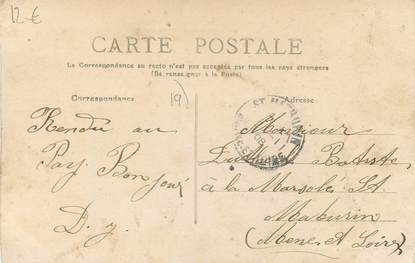 12-€
CARTE POSTALE
La Correspondance au recto n'est pas acceptée par tous les pays étrangers
(Se renseigner à la Poste)
Correspondance
19
Rendu au
Pay. Bonjour
D. y.
Adresse
Monsieur
Baptiste
à la Marsolé St
Maturin
(Mene et Loire)